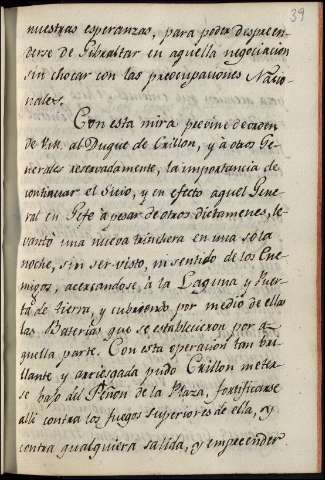 39
nuestras esperanzas, para poder despren-
derse de Gibraltar en aquella negociacion
sin chocar con las preocupaciones Nacio-
nales.
Con esta mira previne de orden
de V.M. al Duque de Crillon, y à otros Ge-
nerales reservadamente, la importancia de
continuar el Sitio, y en efecto aquel Gene-
ral en Gefe à pesar de otros dictamenes, le-
vantò una nueva trinchera en una sola
noche, sin ser visto, ni sentido de los Ene-
migos, acercandose, à la Laguna y Puer-
ta de tierra, y cubriendo por medio de ella
las Baterias que se establecieron por a-
quella parte. Con esta operacion tan bri-
llante y arriesgada pudo Crillon meter-
se bajo del Peñon de la Plaza, fortificarse
alli contra los fuegos superiores de ella, y
contra qualquiera salida, y emprender